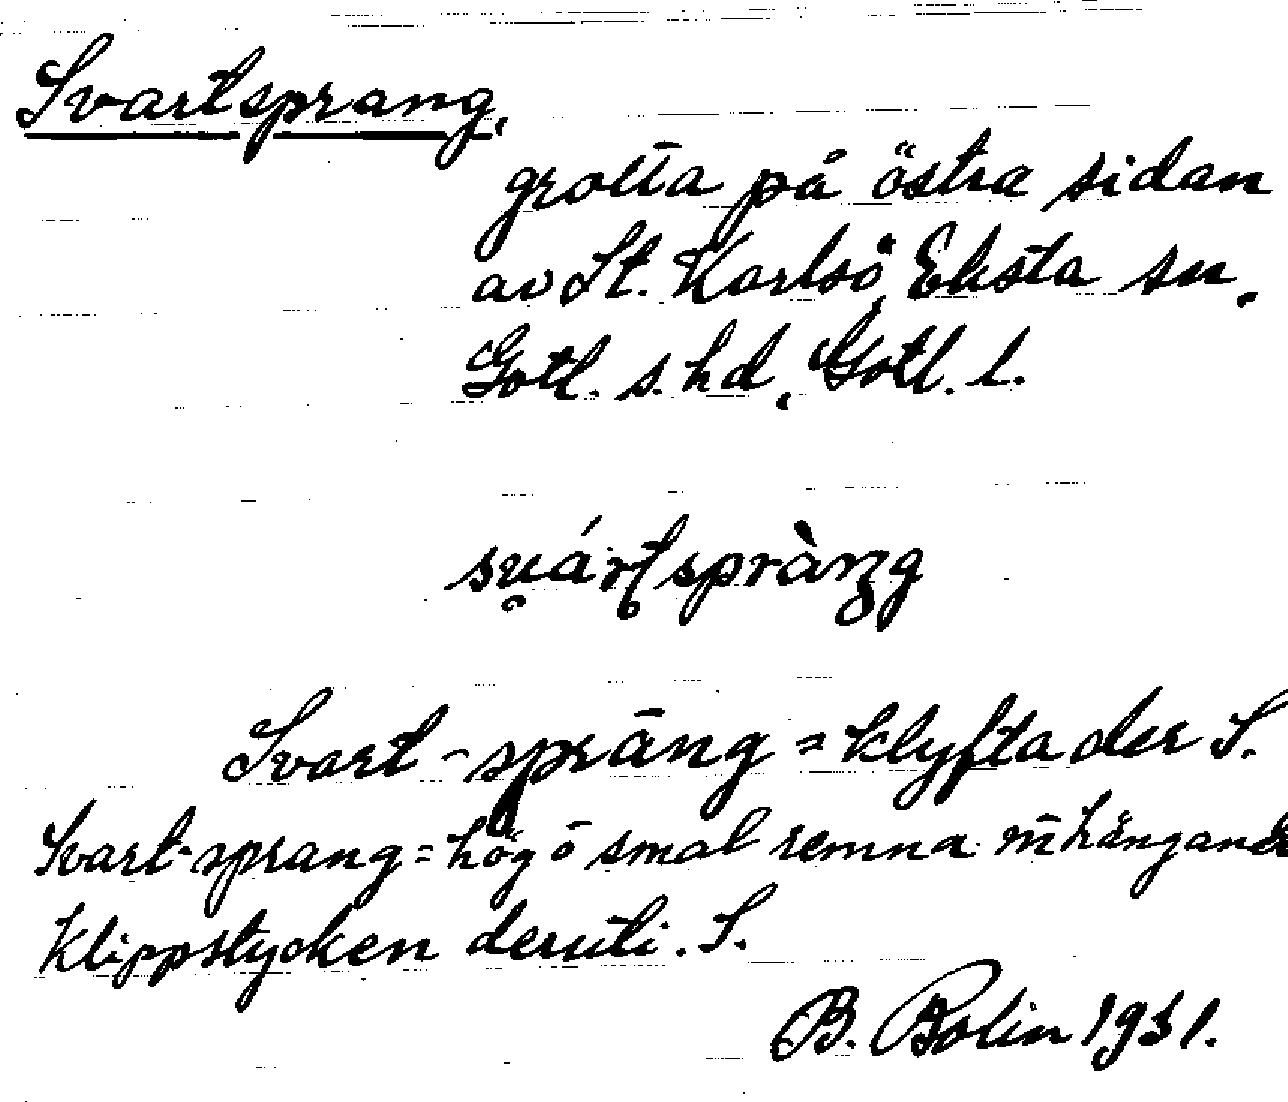 Svartsprang,
grotta på östra sidan
av St. Karlsö, Eksta sn,
Gotl. s. hd, Gotl. l.
Svart-spräng = klyfta der S.
Svart-sprang = hög ō smal remna m̄ hängande
klippstycken deruti. S.
B. Bolin 1931.